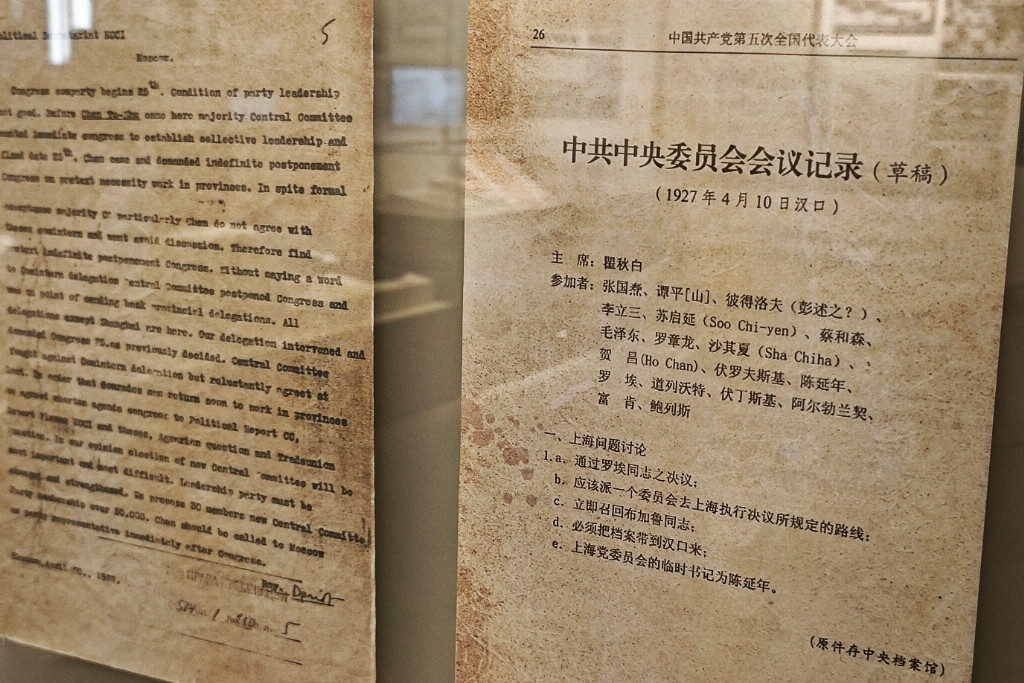 5
Political Secretariat ECCI
Moscow.
Congress comparty begins 25th. Condition of party leadership
not good. Before Chen Tu-Shu came here majority Central Committee
wanted immediate congress to establish collective leadership and
fixed date 25th. Chen came and demanded indefinite postponement
Congress on pretext necessity work in provinces. In spite formal
majority CC particularly Chen do not agree with
theses comintern and want avoid discussion. Therefore find
pretext indefinite postponement Congress. Without saying a word
to Comintern delegation Central Committee postponed Congress and
was on point of sending back provincial delegations. All
delegations except Shanghai are here. Our delegation intervened and
demanded Congress previously decided. Central Committee
fought against Comintern delegation but reluctantly agreed at
last. In order that comrades can return soon to work in provinces
we agreed shorten agenda congress to Political Report CC,
Report Plenum ECCI and theses, Agrarian question and Tradeunion
question. In our opinion election of new Central Committee will be
most important and most difficult. Leadership party must be
changed and strengthened. We propose 30 members new Central Committee
Party membership over 50,000. Chen should be called to Moscow
as party representative immediately after Congress.
Roy. Doriot
5
26
中国共产党第五次全国代表大会
中共中央委员会会议记录(草稿)
(1927年4月10日汉口)
主 席:瞿秋白
参加者:张国焘、谭平[山]、彼得洛夫(彭述之?)、
李立三、苏启延(Soo Chi-yen)、蔡和森、
毛泽东、罗章龙、沙其夏(Sha Chiha)、、
贺 吕(Ho Chan)、伏罗夫斯基、陈延年、
罗 埃、道列沃特、伏丁斯基、阿尔勃兰契、
富 肯、鲍列斯
一、上海问题讨论
1.a. 通过罗埃同志之决议;
b. 应该派一个委员会去上海执行决议所规定的路线;
c. 立即召回布加鲁同志;
d. 必须把档案带到汉口来;
e. 上海党委员会的临时书记为陈延年。
(原件存中央档案馆)